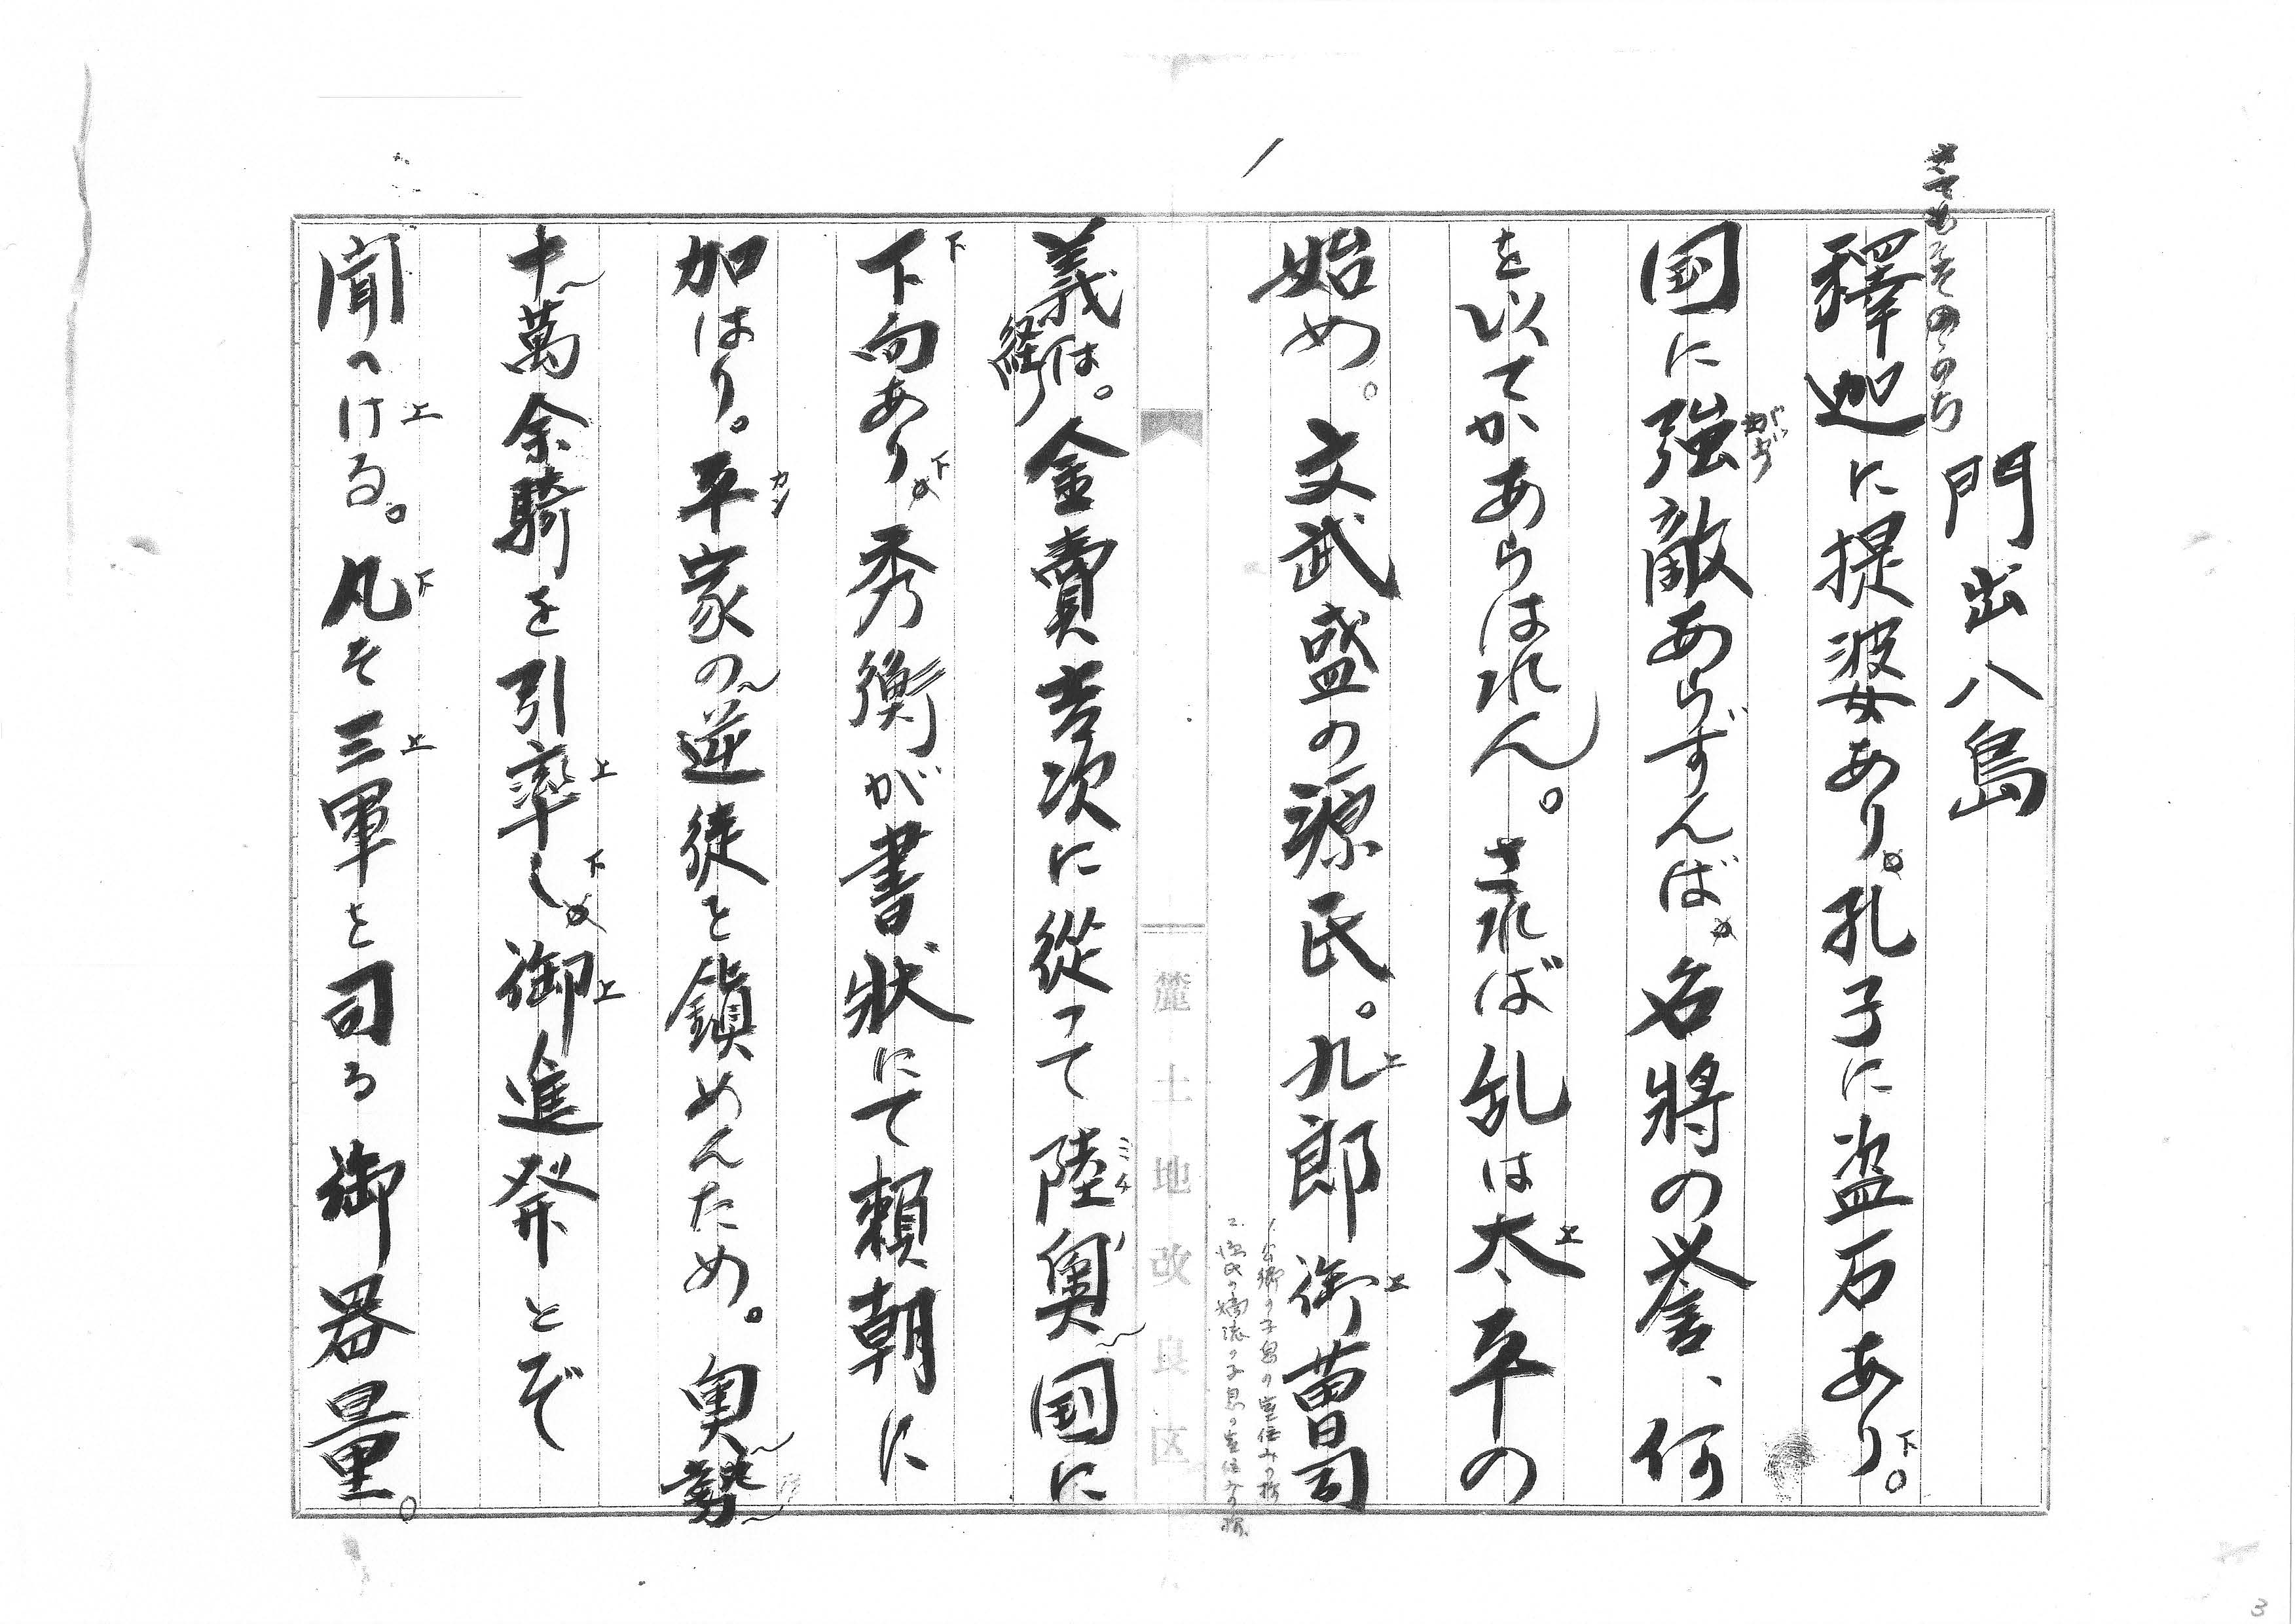 門出八島
さてもそののち
釋迦に提婆あり。孔子に盗石あり。
国に強敵あらずんば。名將の誉、何
を以てかあらはれん。されば乱は太平の
始め。文武盛の源氏。九郎御曹司
義経は。金賣吉次に從って陸奥国に
下向あり。秀衡が書狀にて賴朝に
加はり。平家の逆徒を鎭めんため。奥勢
十萬余騎を引率し。御進発とぞ
聞へける。凡そ三軍を司る御器量。
麓土地改良区
3